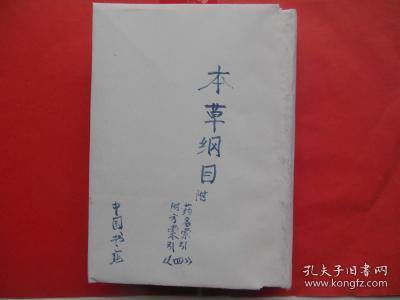 本草纲目附
药名索引
附方索引
《四》
中国书店
孔夫子旧书网
book.kongfz.com